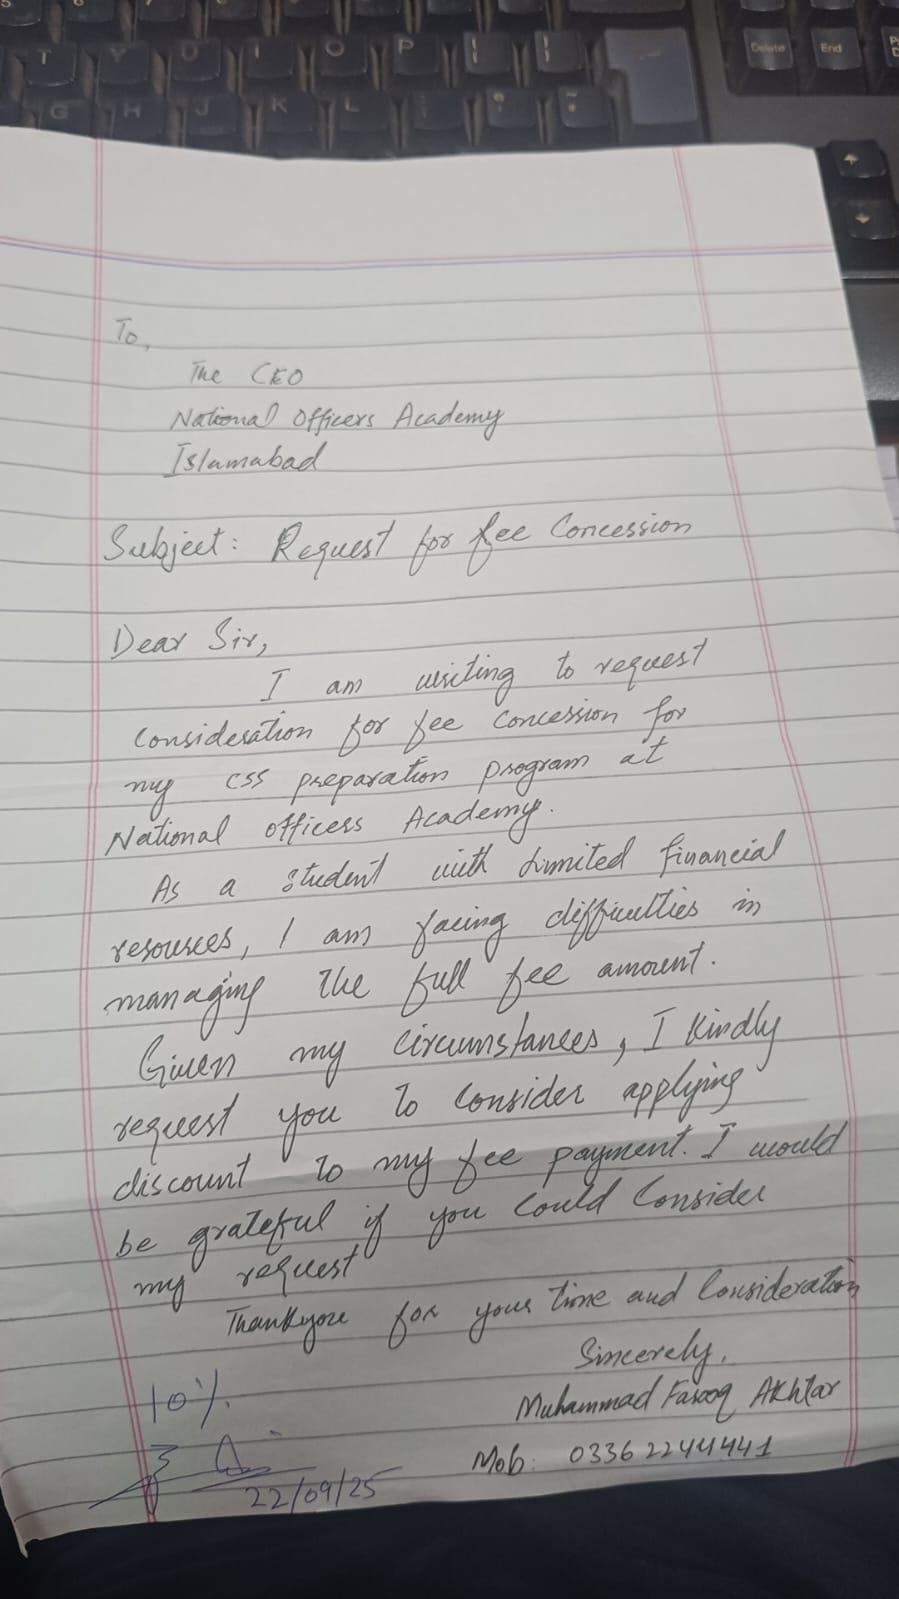 T Y U I O P [ { ] }
Delete End
G H J K L
To,
The CEO
National Officers Academy
Islamabad
Subject: Request for fee Concession
Dear Sir,
I am writing to request
consideration for fee concession for
my CSS preparation program at
National Officers Academy.
As a student with limited financial
resources, I am facing difficulties in
managing the full fee amount.
Given my circumstances, I kindly
request you to consider applying
discount to my fee payment. I would
be grateful if you could consider
my request
Thankyou for your time and consideration
Sincerely,
Muhammad Farooq Akhtar
Mob: 0336 2244441
10%
22/09/25